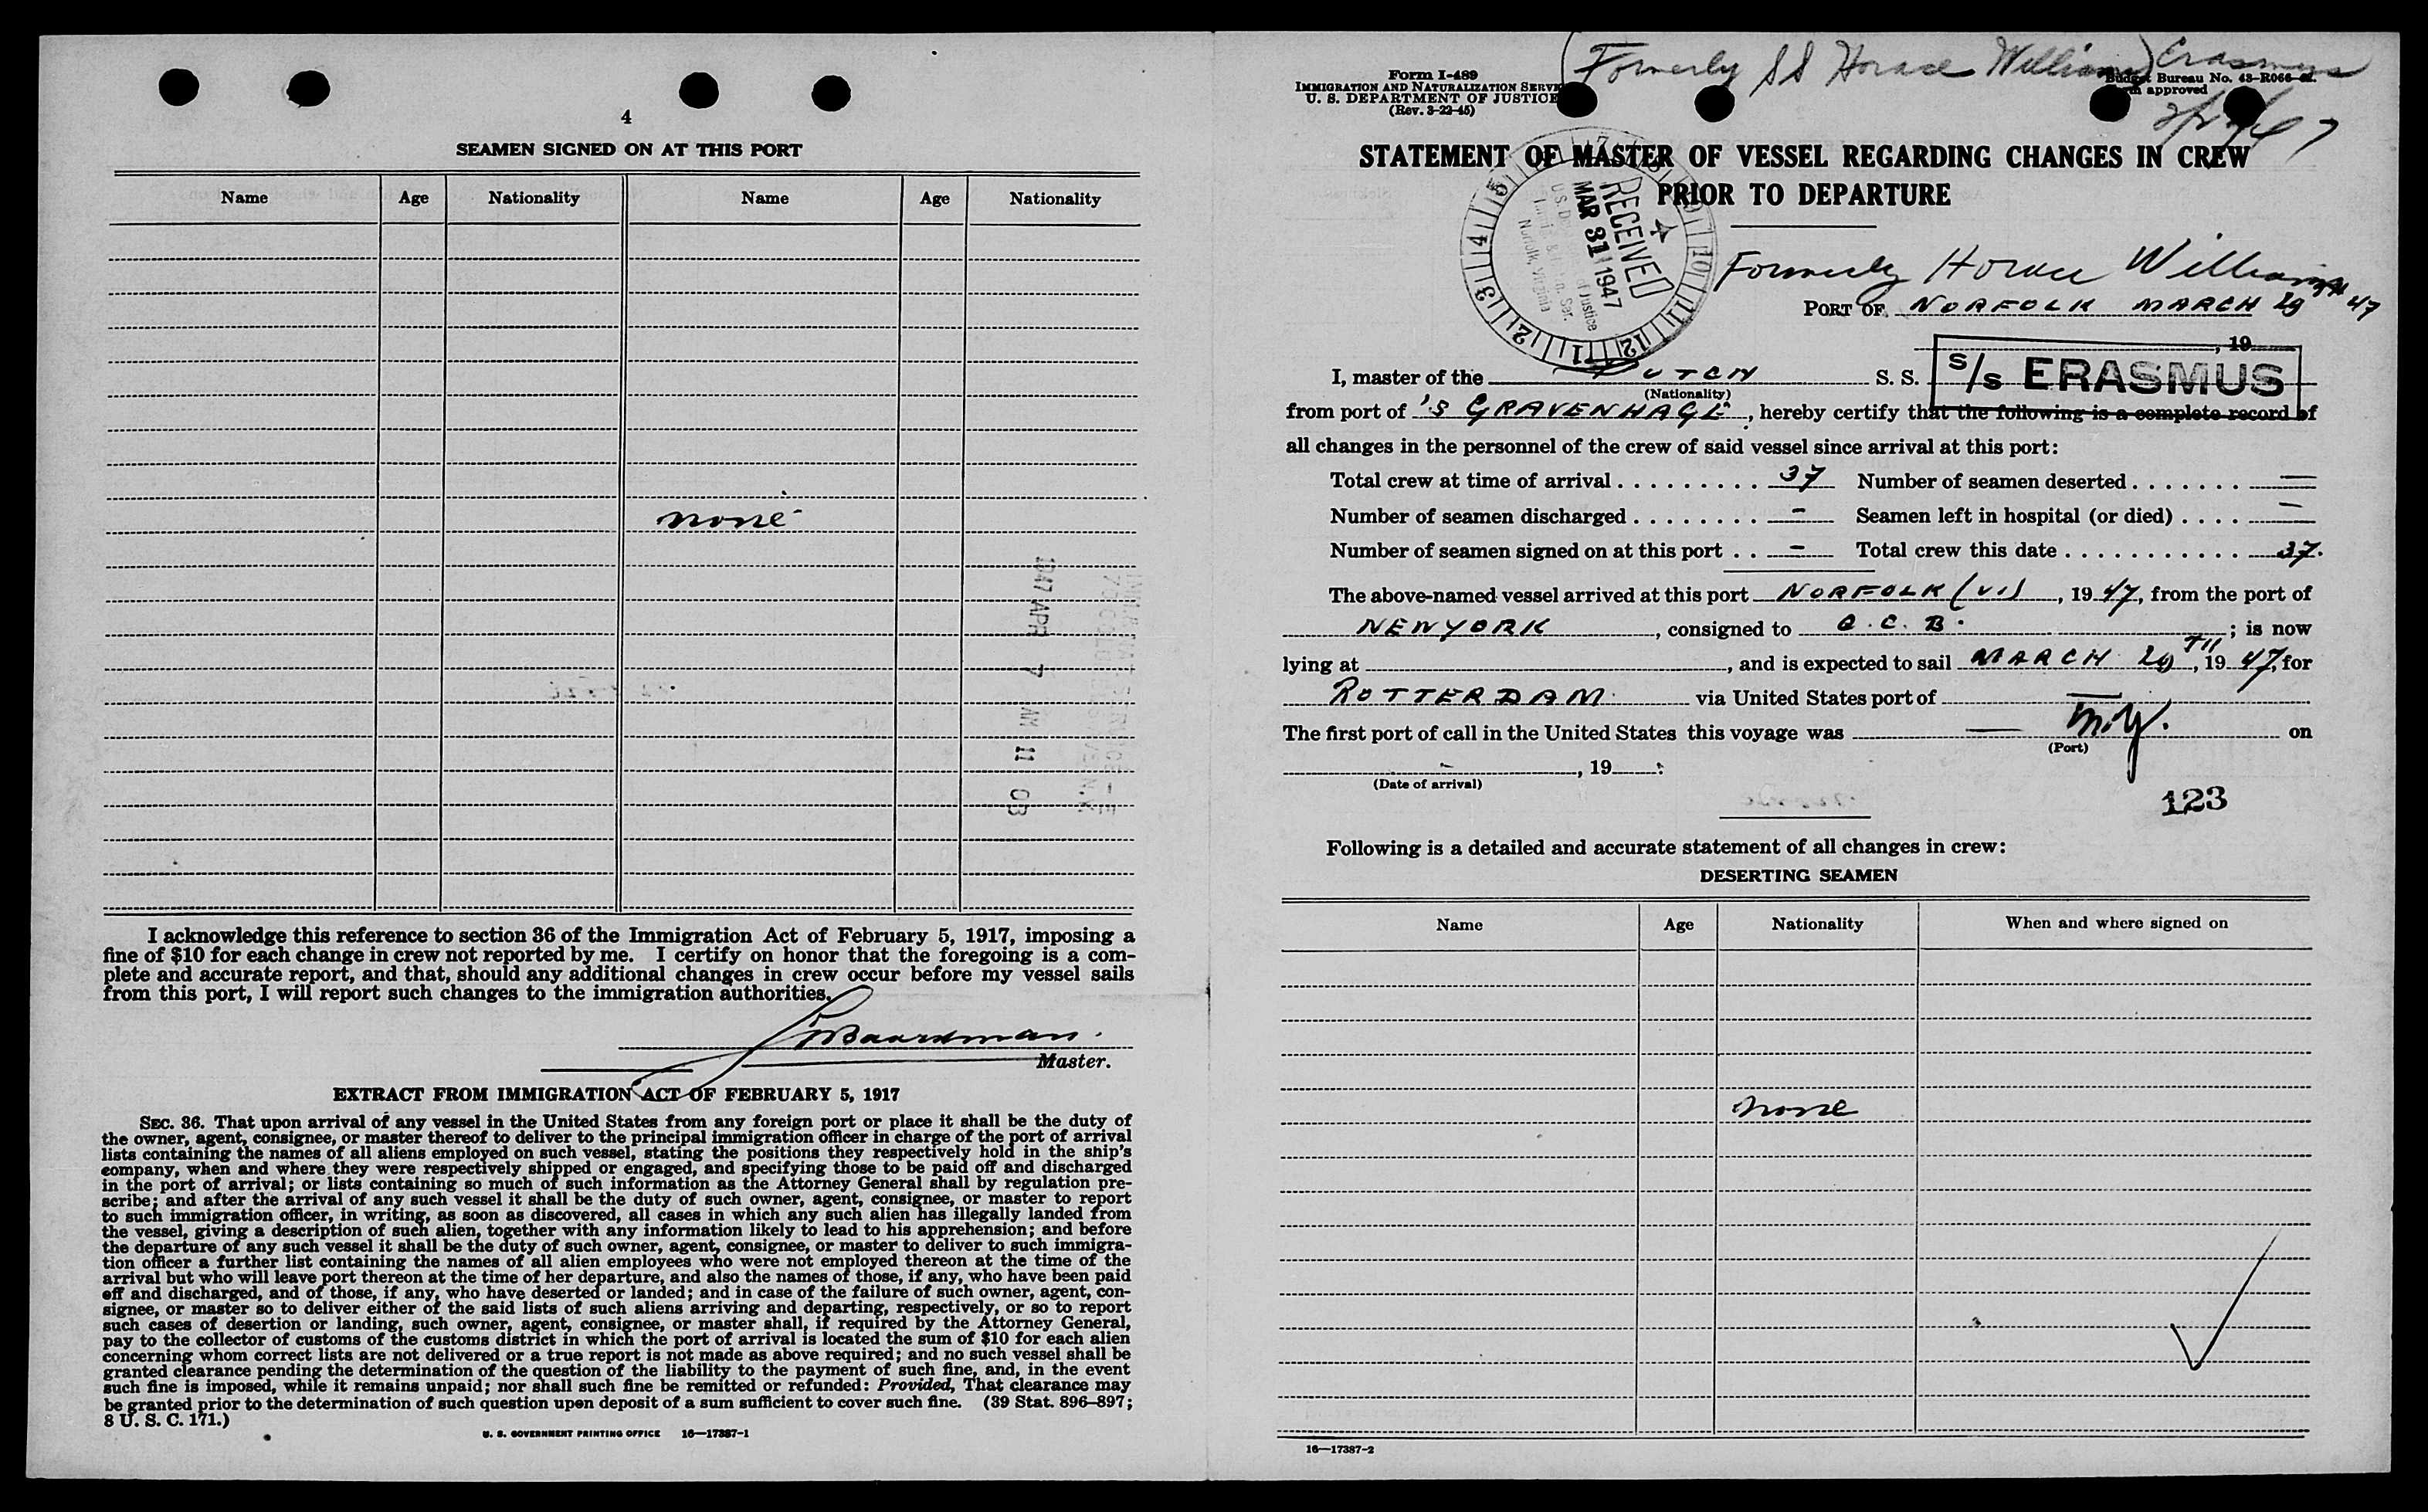 4
SEAMEN SIGNED ON AT THIS PORT
Name Age Nationality Name Age Nationality
none
1947 APR 7 AM 11 03
I acknowledge this reference to section 36 of the Immigration Act of February 5, 1917, imposing a
fine of $10 for each change in crew not reported by me. I certify on honor that the foregoing is a com-
plete and accurate report, and that, should any additional changes in crew occur before my vessel sails
from this port, I will report such changes to the immigration authorities.
Master.
EXTRACT FROM IMMIGRATION ACT OF FEBRUARY 5, 1917
SEC. 36. That upon arrival of any vessel in the United States from any foreign port or place it shall be the duty of
the owner, agent, consignee, or master thereof to deliver to the principal immigration officer in charge of the port of arrival
lists containing the names of all aliens employed on such vessel, stating the positions they respectively hold in the ship's
company, when and where they were respectively shipped or engaged, and specifying those to be paid off and discharged
in the port of arrival; or lists containing so much of such information as the Attorney General shall by regulation pre-
scribe; and after the arrival of any such vessel it shall be the duty of such owner, agent, consignee, or master to report
to such immigration officer, in writing, as soon as discovered, all cases in which any such alien has illegally landed from
the vessel, giving a description of such alien, together with any information likely to lead to his apprehension; and before
the departure of any such vessel it shall be the duty of such owner, agent, consignee, or master to deliver to such immigra-
tion officer a further list containing the names of all alien employees who were not employed thereon at the time of the
arrival but who will leave port thereon at the time of her departure, and also the names of those, if any, who have been paid
off and discharged, and of those, if any, who have deserted or landed; and in case of the failure of such owner, agent, con-
signee, or master so to deliver either of the said lists of such aliens arriving and departing, respectively, or so to report
such cases of desertion or landing, such owner, agent, consignee, or master shall, if required by the Attorney General,
pay to the collector of customs of the customs district in which the port of arrival is located the sum of $10 for each alien
concerning whom correct lists are not delivered or a true report is not made as above required; and no such vessel shall be
granted clearance pending the determination of the question of the liability to the payment of such fine, and, in the event
such fine is imposed, while it remains unpaid; nor shall such fine be remitted or refunded: Provided, That clearance may
be granted prior to the determination of such question upon deposit of a sum sufficient to cover such fine. (39 Stat. 896–897;
8 U. S. C. 171.)
U. S. GOVERNMENT PRINTING OFFICE 16—17387-1
(Formerly SS Horace Williams) Erasmus
Form I-489
IMMIGRATION AND NATURALIZATION SERVICE
U. S. DEPARTMENT OF JUSTICE
(Rev. 3-22-45)
Budget Bureau No. 43-R066
approved
STATEMENT OF MASTER OF VESSEL REGARDING CHANGES IN CREW
PRIOR TO DEPARTURE
RECEIVED
MAR 31 1947
Norfolk, Virginia
Formerly Horace Williams
PORT OF NORFOLK MARCH 29 TH 47
, 19
I, master of the DUTCH S. S. S/S ERASMUS
(Nationality)
from port of 'S GRAVENHAGE, hereby certify that the following is a complete record of
all changes in the personnel of the crew of said vessel since arrival at this port:
Total crew at time of arrival 37 Number of seamen deserted —
Number of seamen discharged - Seamen left in hospital (or died) —
Number of seamen signed on at this port - Total crew this date 37.
The above-named vessel arrived at this port NORFOLK (VI), 1947, from the port of
NEWYORK, consigned to C. B. ; is now
lying at , and is expected to sail MARCH 29 TH, 1947, for
ROTTERDAM via United States port of —
The first port of call in the United States this voyage was — N.Y. on
(Port)
- , 19 :
(Date of arrival)
123
Following is a detailed and accurate statement of all changes in crew:
DESERTING SEAMEN
Name Age Nationality When and where signed on
none
16—17387-2